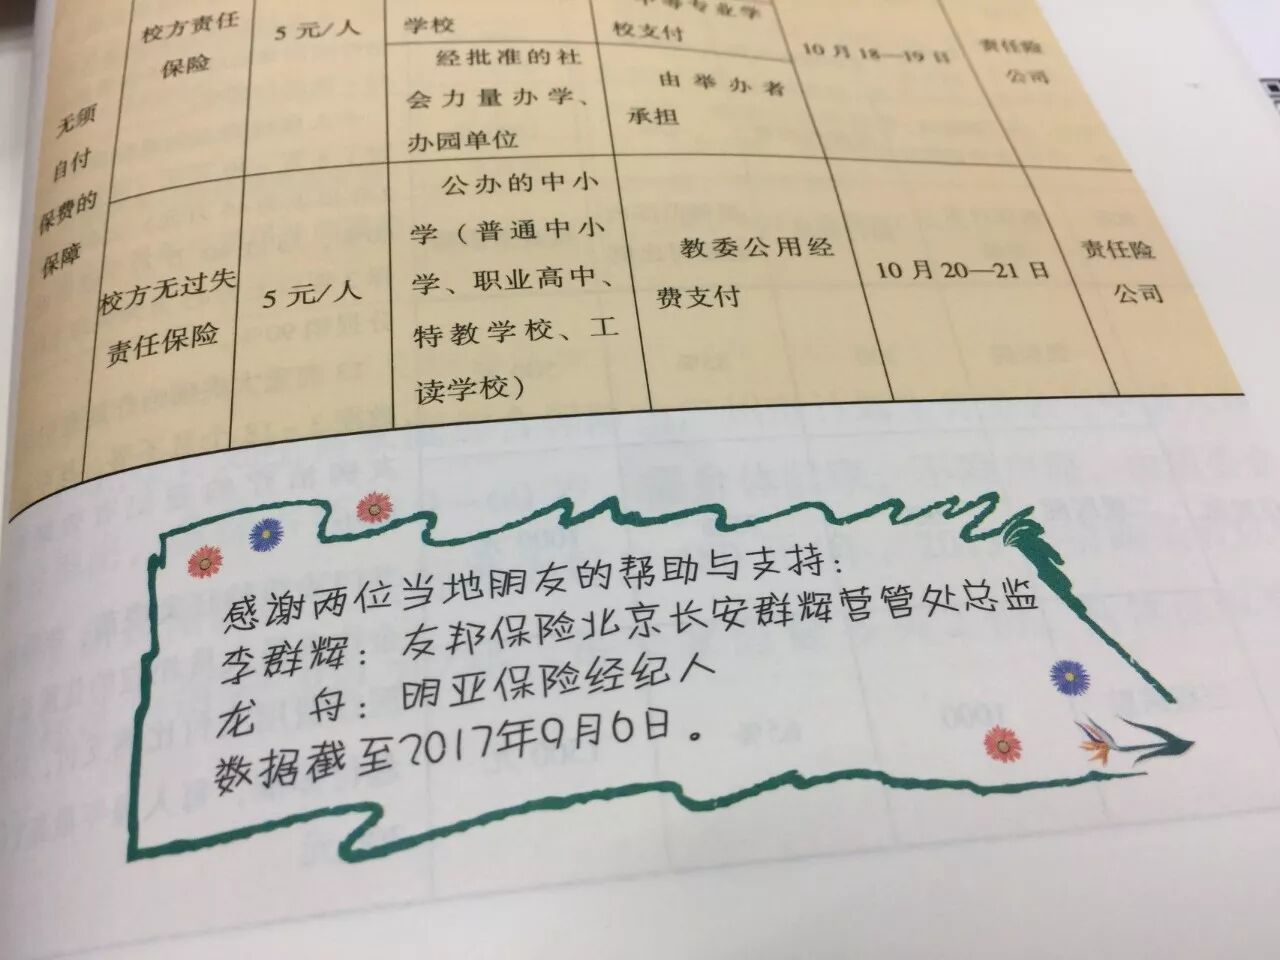 无须
自付
保费的
保障
校方责任
保险
5 元/人
学校
经批准的社
会力量办学、
办园单位
中等专业学
校支付
由举办者
承担
10 月 18—19 日
责任险
公司
校方无过失
责任保险
5 元/人
公办的中小
学（普通中小
学、职业高中、
特教学校、工
读学校）
教委公用经
费支付
10 月 20—21 日
责任险
公司
感谢两位当地朋友的帮助与支持：
李群辉：友邦保险北京长安群辉营管处总监
龙 舟：明亚保险经纪人
数据截至2017年9月6日。